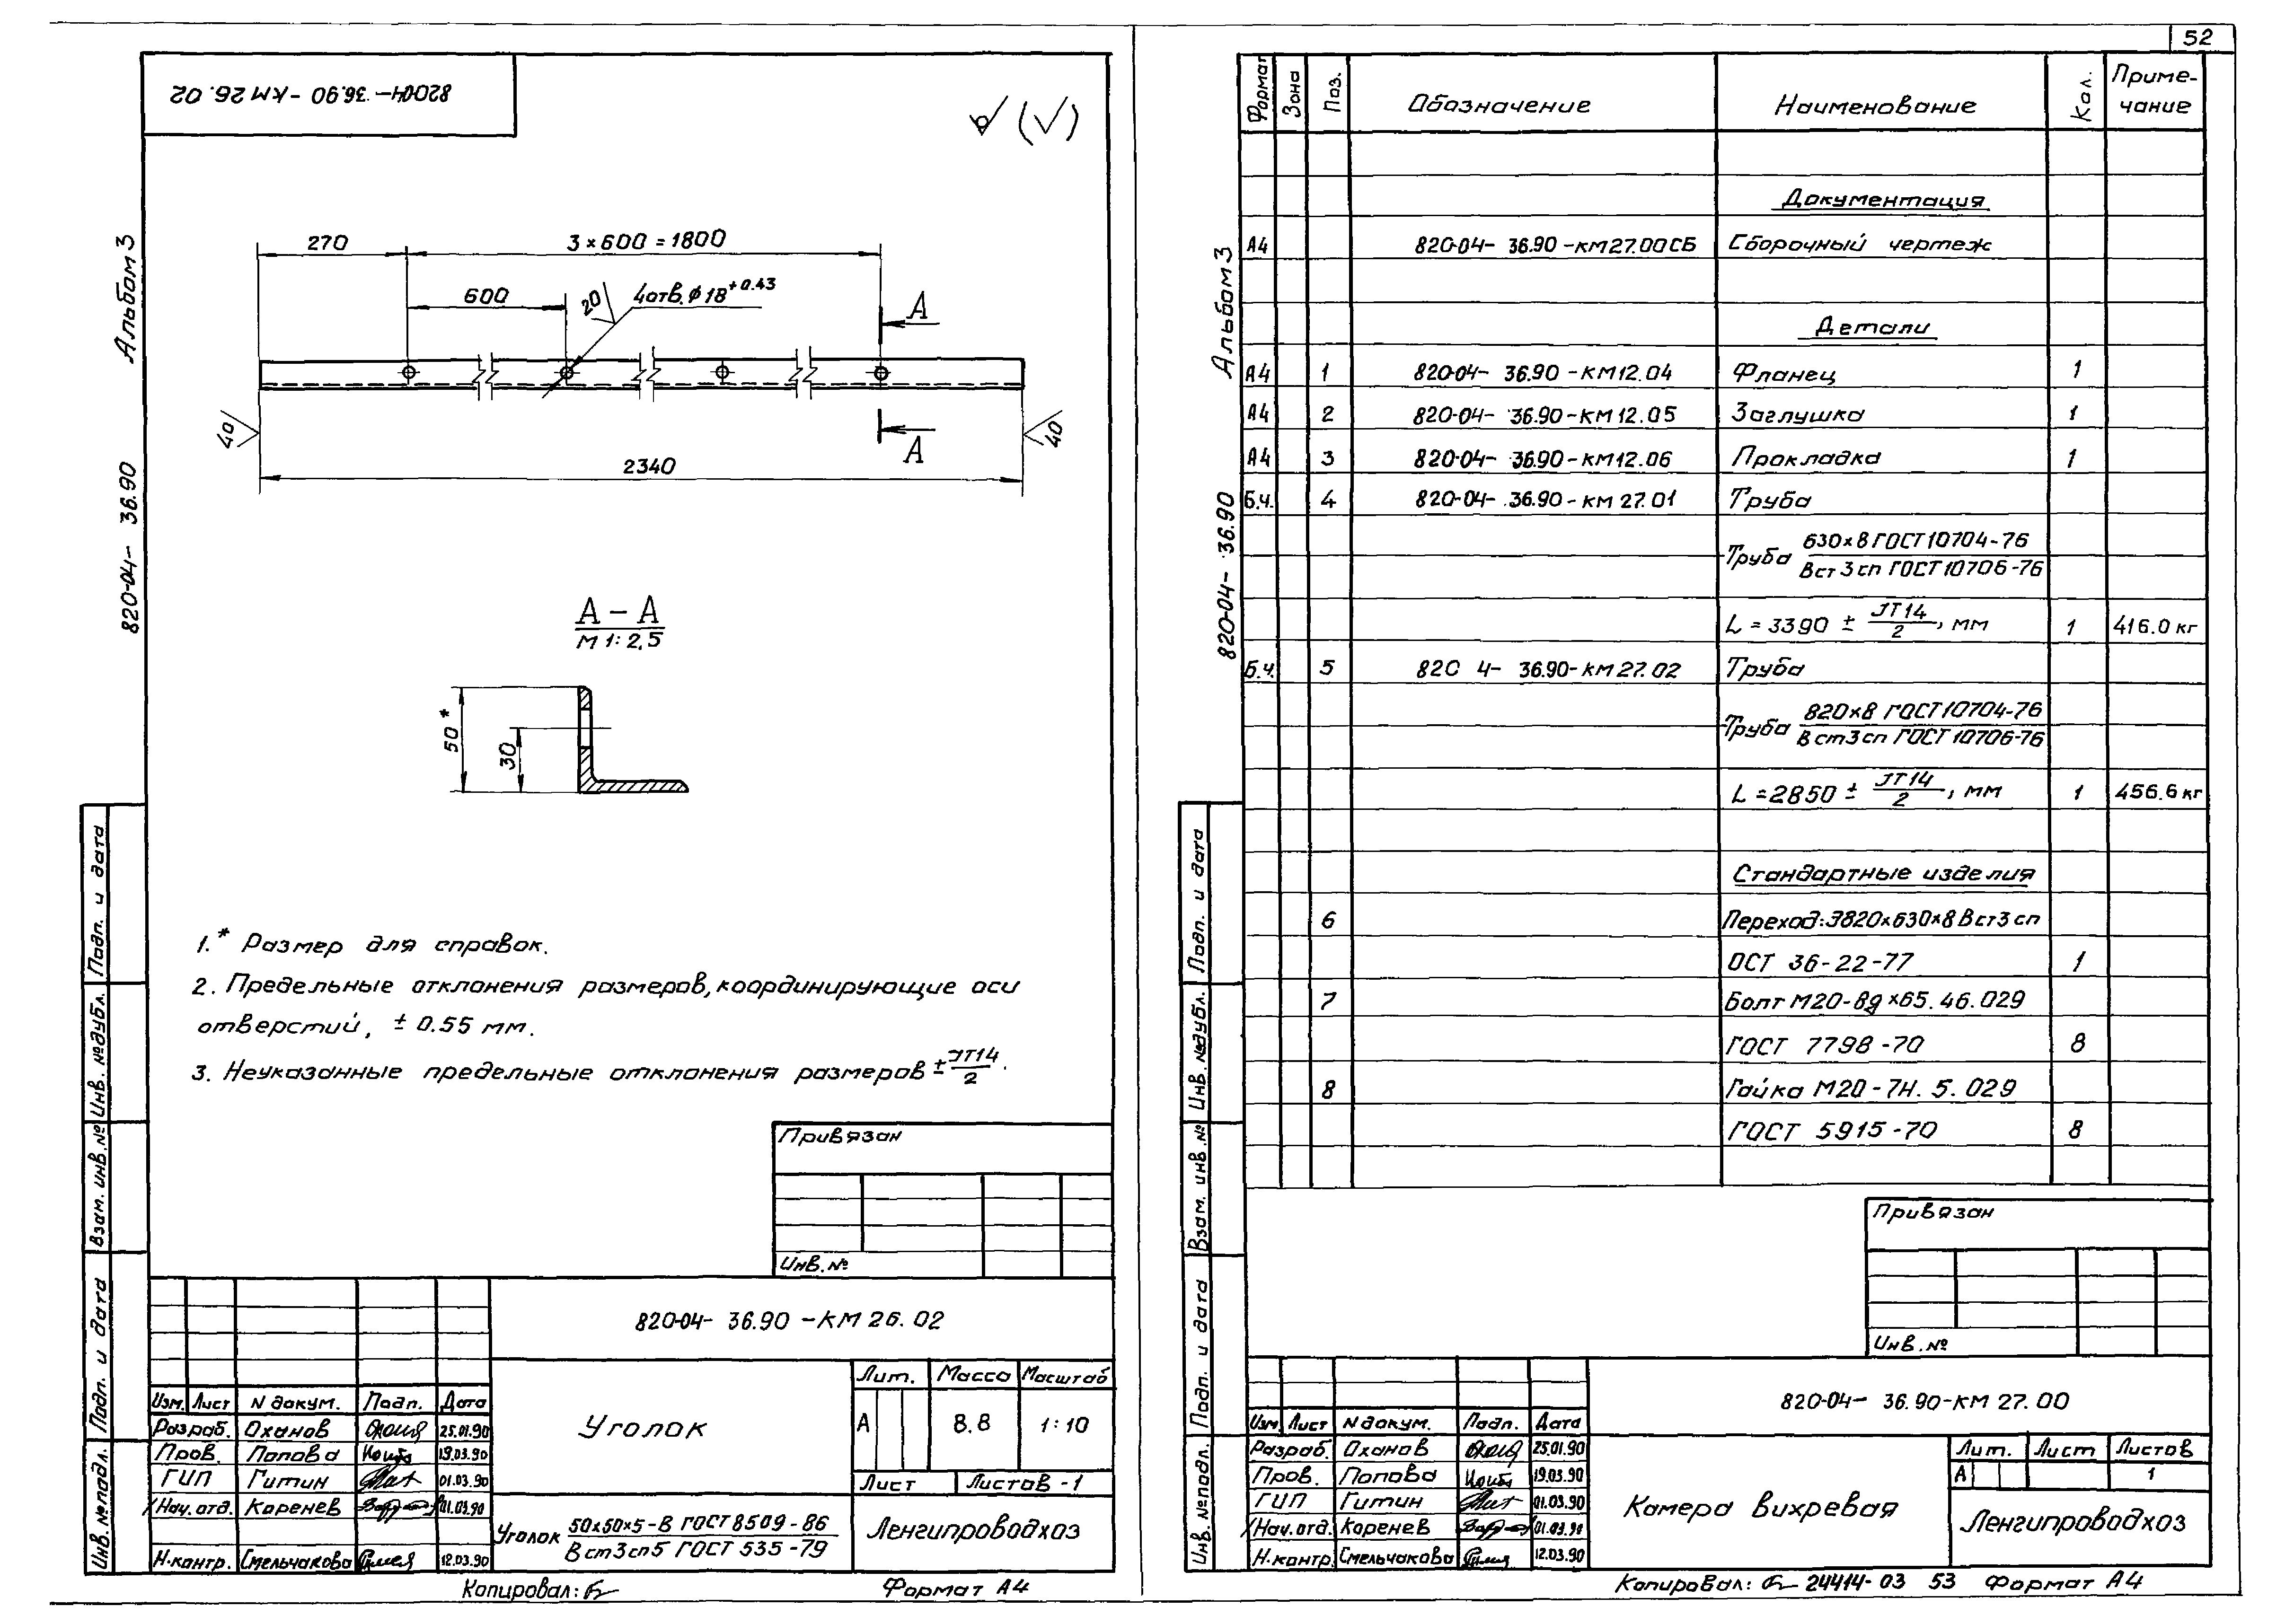 820-04- 36.90 -КМ 26.02
Альбом 3
820-04- 36.90
270
3 × 600 = 1800
600
20
4 отв. ϕ 18 +0.43
А
А
40
40
2340
А - А
М 1: 2,5
50 *
30
1.* Размер для справок.
2. Предельные отклонения размеров, координирующие оси
отверстий, ± 0.55 мм.
3. Неуказанные предельные отклонения размеров ± JT14/2.
Привязан
Инв. №
Подп. и дата
Инв. № дубл.
Взам. инв. №
Подп. и дата
Инв. № подл.
820-04- 36.90 -КМ 26.02
Изм. Лист N докум. Подп. Дата
Разраб. Оханов 25.01.90
Пров. Попова 19.03.90
ГИП Гитин 01.03.90
Нач. отд. Коренев 01.03.90
Н.контр. Смельчакова 12.03.90
Уголок
Лит. Масса Масштаб
А 8.8 1:10
Лист Листов - 1
Уголок 50х50х5-В ГОСТ 8509-86
В ст3сп5 ГОСТ 535-79
Ленгипроводхоз
Копировал:
Формат А4
52
Альбом 3
820-04- 36.90
Формат Зона Поз. Обозначение Наименование Кол. Приме-
чание
Документация
А4 820-04- 36.90 -КМ 27.00 СБ Сборочный чертеж
Детали
А4 1 820-04- 36.90 -КМ 12.04 Фланец 1
А4 2 820-04- 36.90 -КМ 12.05 Заглушка 1
А4 3 820-04- 36.90 -КМ 12.06 Прокладка 1
Б.ч. 4 820-04- 36.90 - КМ 27.01 Труба
Труба 630×8 ГОСТ 10704-76
Вст 3 сп ГОСТ 10706-76
L = 3390 ± JT14/2, мм 1 416.0 кг
Б.ч. 5 820 4- 36.90-КМ 27.02 Труба
Труба 820×8 ГОСТ 10704-76
В ст3 сп ГОСТ 10706-76
L = 2850 ± JT14/2, мм 1 456.6 кг
Стандартные изделия
6 Переход: Э820×630×8 Вст3 сп
ОСТ 36-22-77 1
7 Болт М20-8g×65.46.029
ГОСТ 7798-70 8
8 Гайка М20-7Н.5.029
ГОСТ 5915-70 8
Привязан
Инв. №
Подп. и дата
Инв. № дубл.
Взам. инв. №
Подп. и дата
Инв. № подл.
820-04- 36.90-КМ 27.00
Изм. Лист N докум. Подп. Дата
Разраб. Оханов 25.01.90
Пров. Попова 19.03.90
ГИП Гитин 01.03.90
Нач. отд. Коренев 01.03.90
Н.контр. Смельчакова 12.03.90
Камера вихревая
Лит. Лист Листов
А 1
Ленгипроводхоз
Копировал: 24414-03 53 Формат А4